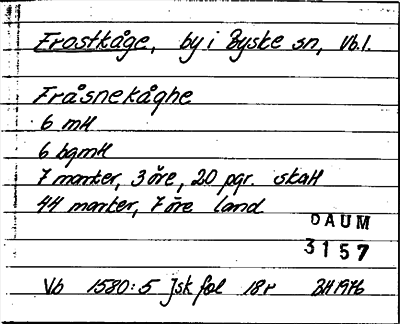 Frostkåge, by i Byske sn, Vb.l.
Fråsnekåghe
6 mtl
6 bgmtl
7 marker, 3 öre, 20 pgr. skatt
44 marker, 7 öre land
DAUM
3157
Vb 1580:5 Jsk fol 18r 1976